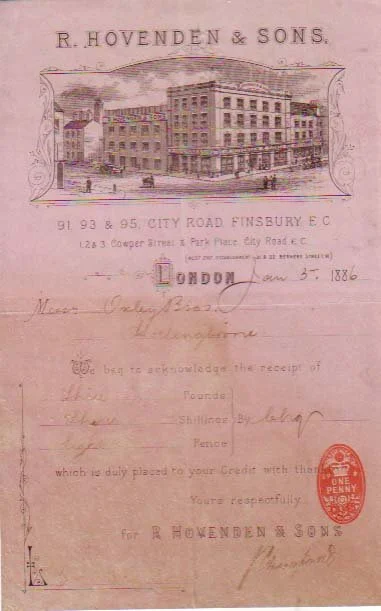 R. HOVENDEN & SONS.
91, 93 & 95, CITY ROAD FINSBURY E.C
1, 2 & 3 Cowper Street & Park Place City Road E.C.
(WEST END ESTABLISHMENT BERNERS STREET W)
LONDON Jan 3 1886
Messrs Oxley Bros
We beg to acknowledge the receipt of
Three Pounds
Three Shillings By Chq
Eight Pence
which is duly placed to your Credit with thanks
Yours respectfully
for R HOVENDEN & SONS
ONE
PENNY